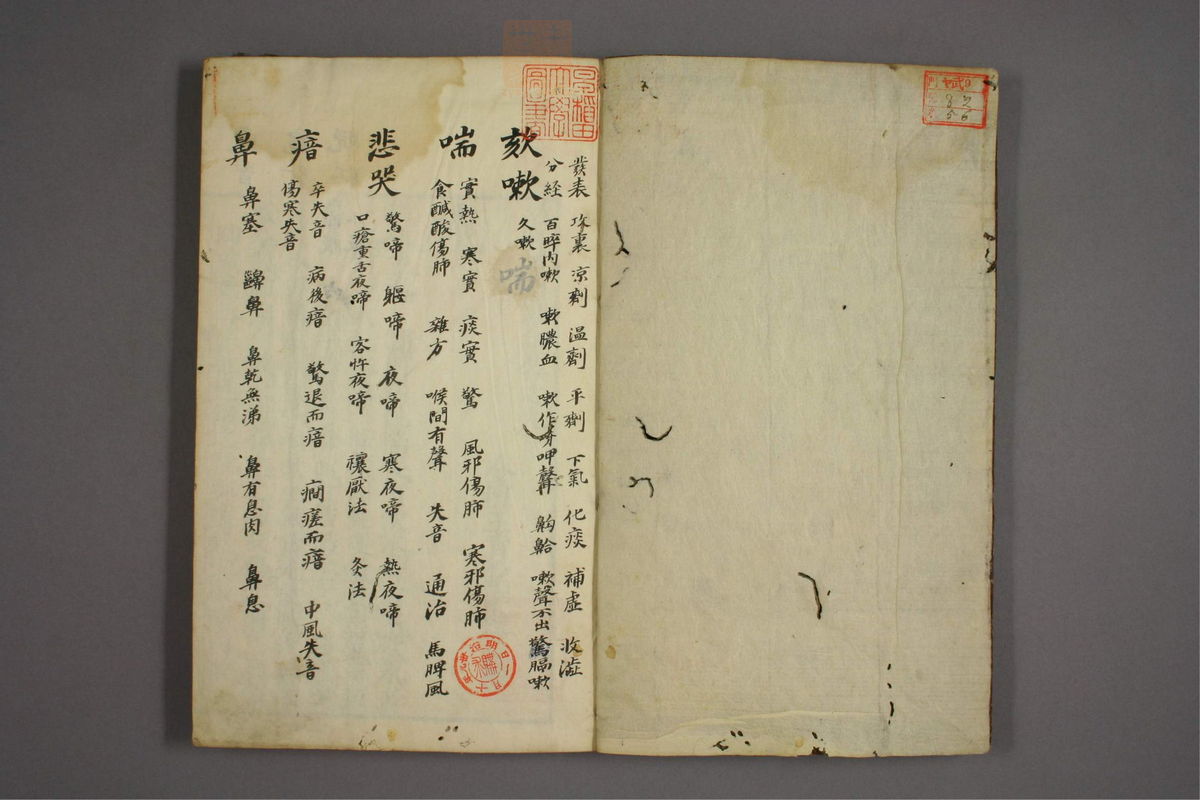 欬嗽
發表 攻裏 涼劑 温劑 平劑 下氣 化痰 補虛 收澁
分経 百晬內嗽 嗽膿血 嗽作呀呷聲 齁鼾 嗽聲不出 驚膈嗽
久嗽
喘
喘
實熱 寒實 痰實 驚 風邪傷肺 寒邪傷肺
食鹹酸傷肺 雜方 喉間有聲 失音 通治 馬脾風
悲哭
驚啼 軀啼 夜啼 寒夜啼 熱夜啼
口瘡重舌夜啼 客忤夜啼 禳厭法 灸法
瘖
卒失音 病後瘖 驚退而瘖 癇瘥而瘖 中風失音
傷寒失音
鼻
鼻塞 齆鼻 鼻乾無涕 鼻有息肉 鼻息